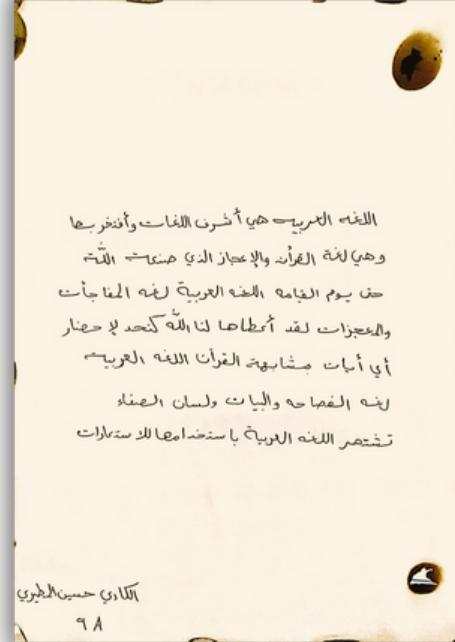 اللغه العربيه هي أشرف اللغات وأفتخر بها
وهي لغة القرأن والإعجاز الذي صنعت اللّه
حتى يوم القيامه اللغه العربية لغه المفاجآت
والمعجزات لقد أعطاها لنا اللّه كتحد لإحضار
أي أيات مشابهة القرآن اللغه العربيه
لغه الفصاحه والبيان ولسان الصفاء
تشتهر اللغه العربية باستخدامها للاستعارات
الكادي حسين المطيري
٩٨